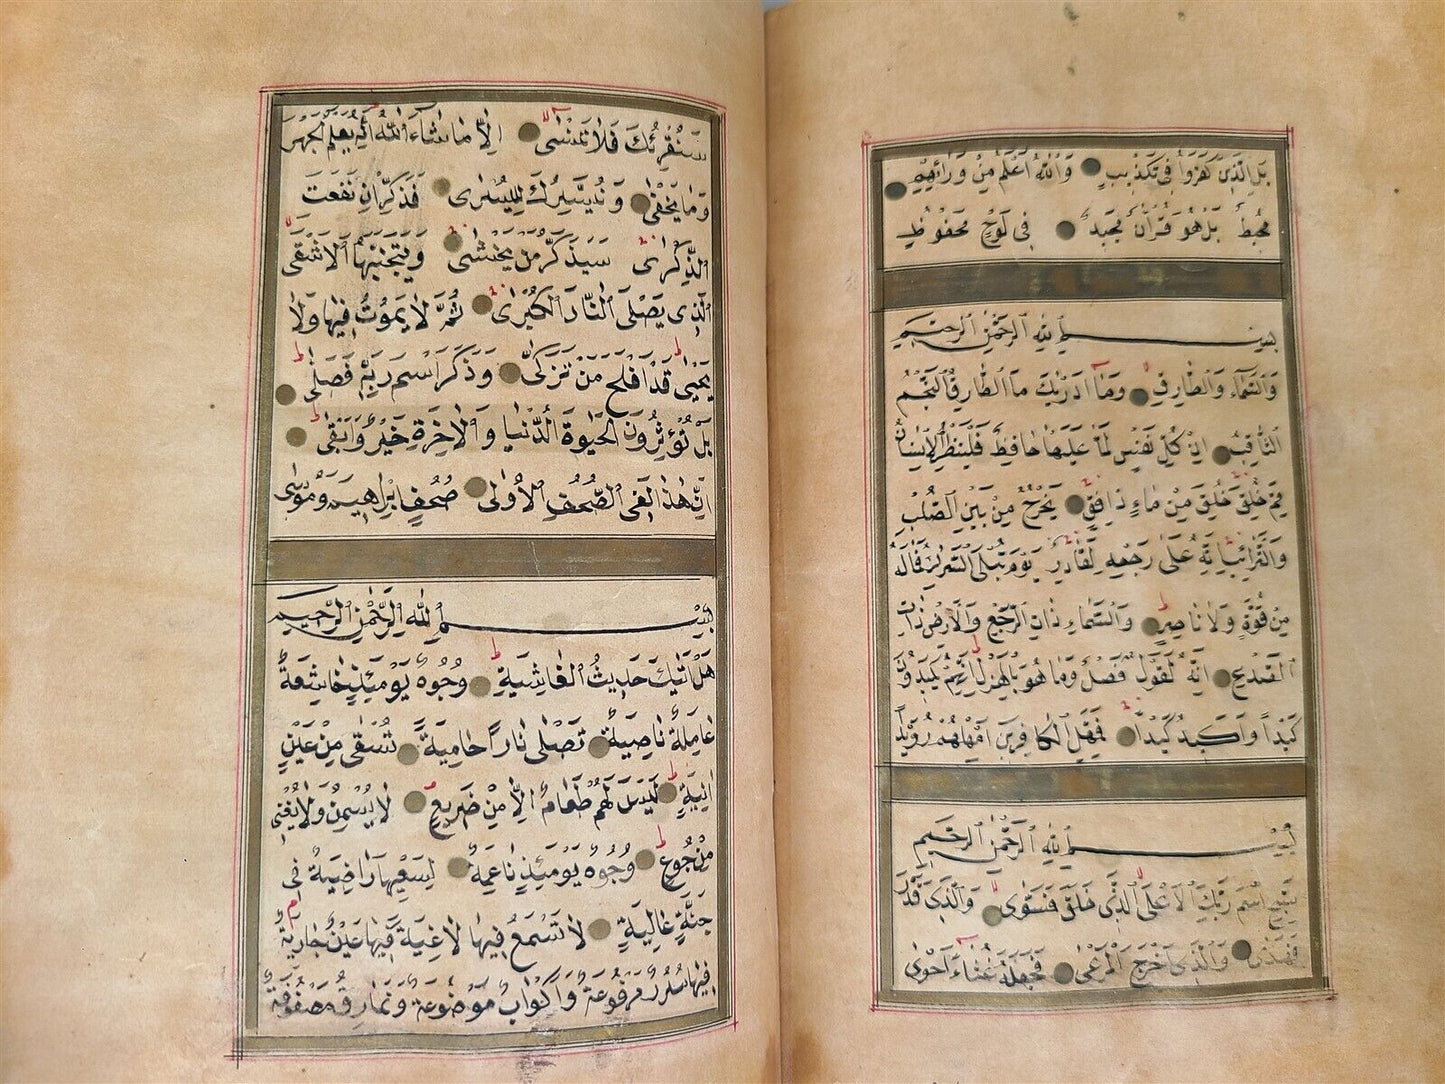 بَلِ الَّذِينَ كَفَرُوا فِي تَكْذِيبٍ وَاللَّهُ أَعْلَمُ مِنْ وَرَائِهِمْ
مُحِيطٌ بَلْ هُوَ قُرْآنٌ مَجِيدٌ فِي لَوْحٍ مَحْفُوظٍ
بِسْمِ اللَّهِ الرَّحْمَنِ الرَّحِيمِ
وَالسَّمَاءِ وَالطَّارِقِ وَمَا أَدْرَيكَ مَا الطَّارِقُ النَّجْمُ
الثَّاقِبُ إِنْ كُلُّ نَفْسٍ لَمَّا عَلَيْهَا حَافِظٌ فَلْيَنْظُرِ الْإِنْسَانُ
مِمَّ خُلِقَ خُلِقَ مِنْ مَاءٍ دَافِقٍ يَخْرُجُ مِنْ بَيْنِ الصُّلْبِ
وَالتَّرَائِبِ إِنَّهُ عَلَى رَجْعِهِ لَقَادِرٌ يَوْمَ تُبْلَى السَّرَائِرُ فَمَا لَهُ
مِنْ قُوَّةٍ وَلَا نَاصِرٍ وَالسَّمَاءِ ذَاتِ الرَّجْعِ وَالْأَرْضِ ذَاتِ
الصَّدْعِ إِنَّهُ لَقَوْلٌ فَصْلٌ وَمَا هُوَ بِالْهَزْلِ إِنَّهُمْ يَكِيدُونَ
كَيْدًا وَأَكِيدُ كَيْدًا فَمَهِّلِ الْكَافِرِينَ أَمْهِلْهُمْ رُوَيْدًا
بِسْمِ اللَّهِ الرَّحْمَنِ الرَّحِيمِ
سَبِّحِ اسْمَ رَبِّكَ الْأَعْلَى الَّذِي خَلَقَ فَسَوَّى وَالَّذِي قَدَّرَ
فَهَدَى وَالَّذِي أَخْرَجَ الْمَرْعَى فَجَعَلَهُ غُثَاءً أَحْوَى
سَنُقْرِئُكَ فَلَا تَنْسَى إِلَّا مَا شَاءَ اللَّهُ إِنَّهُ يَعْلَمُ الْجَهْرَ
وَمَا يَخْفَى وَنُيَسِّرُكَ لِلْيُسْرَى فَذَكِّرْ إِنْ نَفَعَتِ
الذِّكْرَى سَيَذَّكَّرُ مَنْ يَخْشَى وَيَتَجَنَّبُهَا الْأَشْقَى
الَّذِي يَصْلَى النَّارَ الْكُبْرَى ثُمَّ لَا يَمُوتُ فِيهَا وَلَا
يَحْيَى قَدْ أَفْلَحَ مَنْ تَزَكَّى وَذَكَرَ اسْمَ رَبِّهِ فَصَلَّى
بَلْ تُؤْثِرُونَ الْحَيٰوةَ الدُّنْيَا وَالْآخِرَةُ خَيْرٌ وَأَبْقَى
إِنَّ هَذَا لَفِي الصُّحُفِ الْأُولَى صُحُفِ إِبْرَاهِيمَ وَمُوسَى
بِسْمِ اللَّهِ الرَّحْمَنِ الرَّحِيمِ
هَلْ أَتَيكَ حَدِيثُ الْغَاشِيَةِ وُجُوهٌ يَوْمَئِذٍ خَاشِعَةٌ
عَامِلَةٌ نَاصِبَةٌ تَصْلَى نَارًا حَامِيَةً تُسْقَى مِنْ عَيْنٍ
آنِيَةٍ لَيْسَ لَهُمْ طَعَامٌ إِلَّا مِنْ ضَرِيعٍ لَا يُسْمِنُ وَلَا يُغْنِي
مِنْ جُوعٍ وُجُوهٌ يَوْمَئِذٍ نَاعِمَةٌ لِسَعْيِهَا رَاضِيَةٌ فِي
جَنَّةٍ عَالِيَةٍ لَا تَسْمَعُ فِيهَا لَاغِيَةً فِيهَا عَيْنٌ جَارِيَةٌ
فِيهَا سُرُرٌ مَرْفُوعَةٌ وَأَكْوَابٌ مَوْضُوعَةٌ وَنَمَارِقُ مَصْفُوفَةٌ